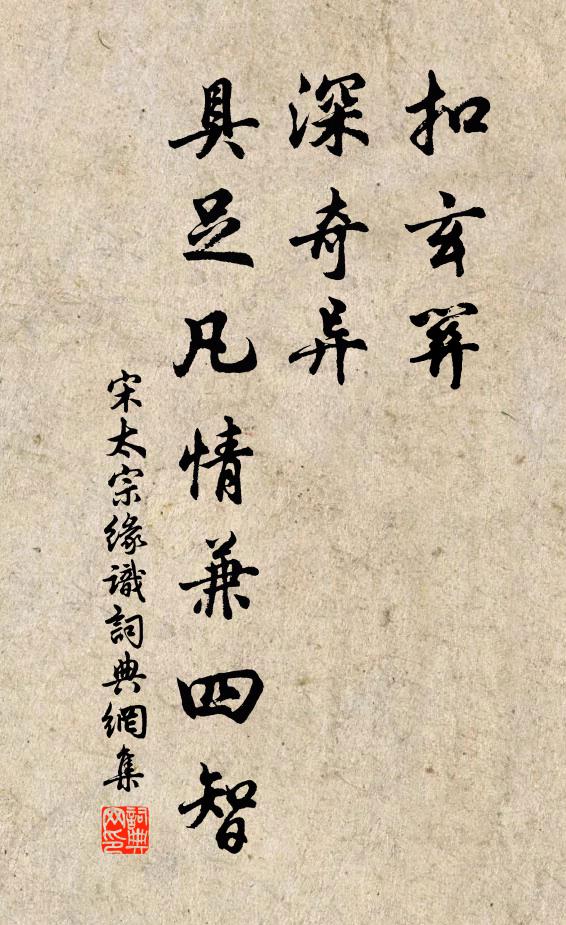 扣玄關
深奇异
具足凡情兼四智
宋太宗緣識詞典網集
詞典
网印